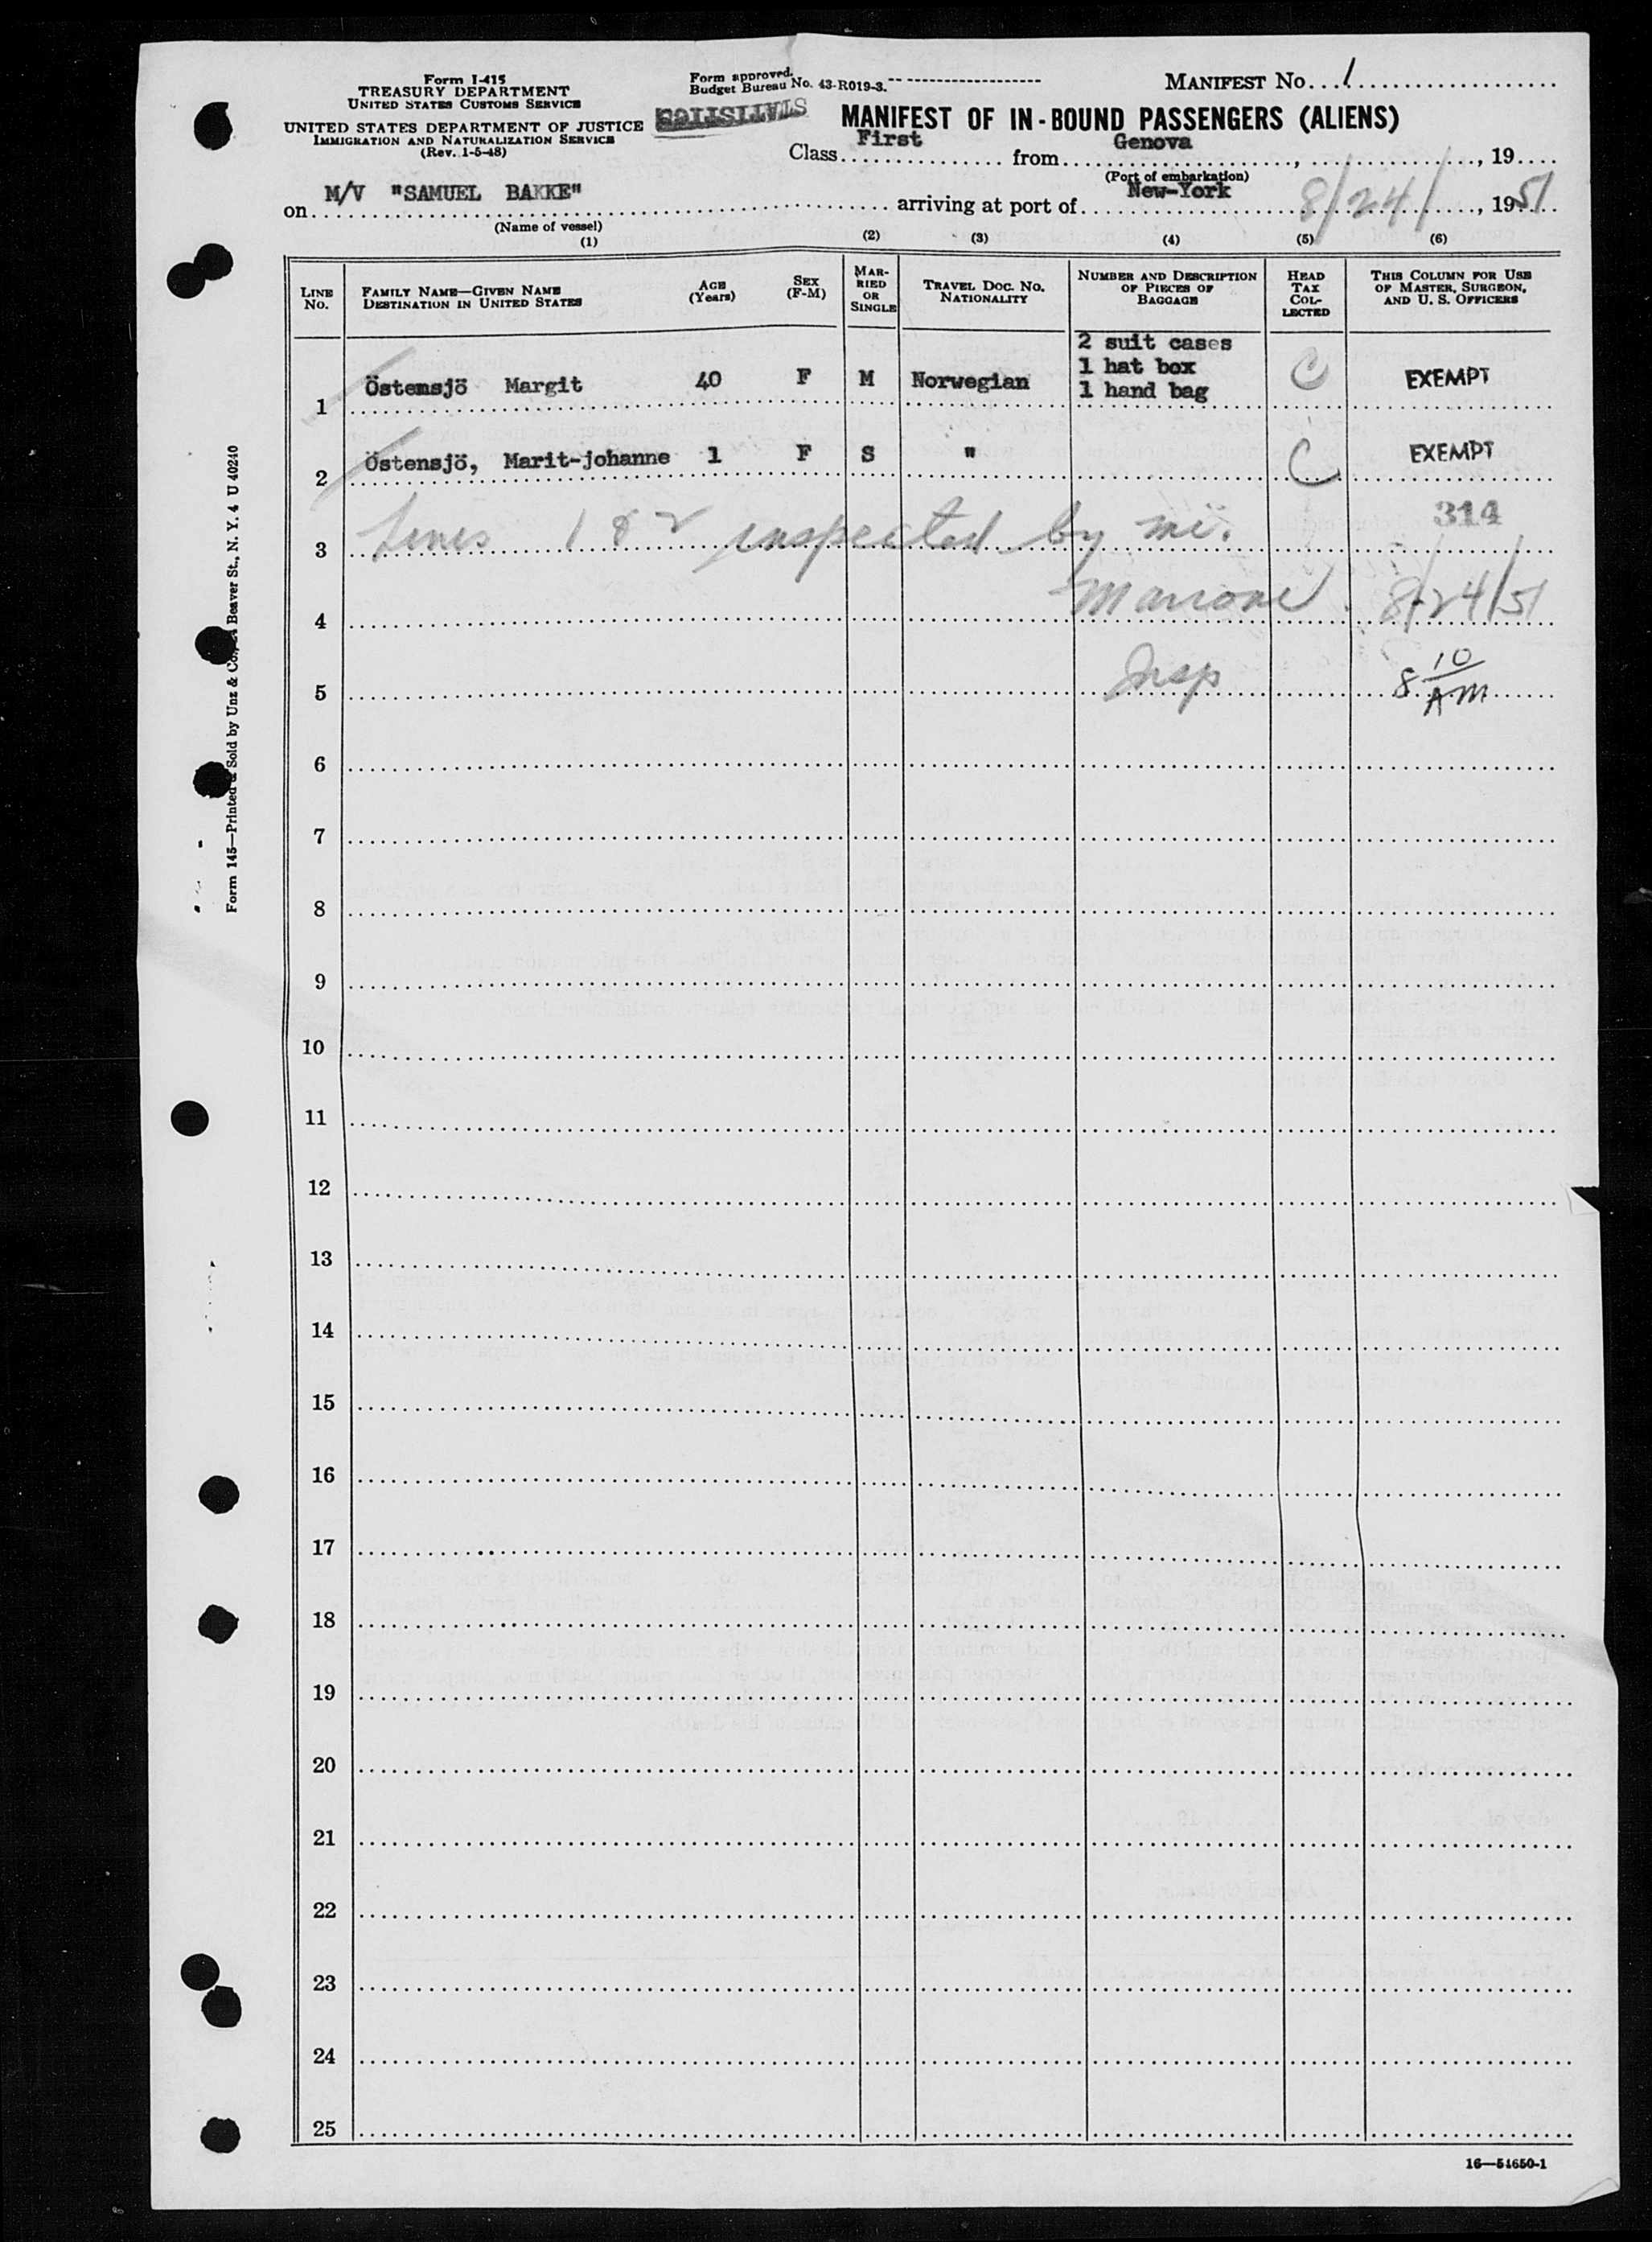 Form I-415
TREASURY DEPARTMENT
UNITED STATES CUSTOMS SERVICE
UNITED STATES DEPARTMENT OF JUSTICE
IMMIGRATION AND NATURALIZATION SERVICE
(Rev. 1-5-48)
Form approved.
Budget Bureau No. 43-R019-3.
STATISTICS
MANIFEST No. 1
MANIFEST OF IN-BOUND PASSENGERS (ALIENS)
Class First from Genova, , 19
(Port of embarkation)
on M/V "SAMUEL BAKKE" arriving at port of New-York 8/24/, 1951
(Name of vessel)
(1) (2) (3) (4) (5) (6)
LINE No. FAMILY NAME—GIVEN NAME DESTINATION IN UNITED STATES AGE (Years) SEX (F-M) MARRIED OR SINGLE TRAVEL DOC. NO. NATIONALITY NUMBER AND DESCRIPTION OF PIECES OF BAGGAGE HEAD TAX COLLECTED THIS COLUMN FOR USE OF MASTER, SURGEON, AND U. S. OFFICERS
2 suit cases
1 hat box
1 Östemsjö Margit 40 F M Norwegian 1 hand bag C EXEMPT
2 Östensjö, Marit-johanne 1 F S " C EXEMPT
314
3 Lines 1 & 2 inspected by me.
4 8/24/51
5 Insp 8 10 AM
6
7
8
9
10
11
12
13
14
15
16
17
18
19
20
21
22
23
24
25
16—54650-1
Form 145—Printed & Sold by Unz & Co., Beaver St., N. Y. 4 U 40240